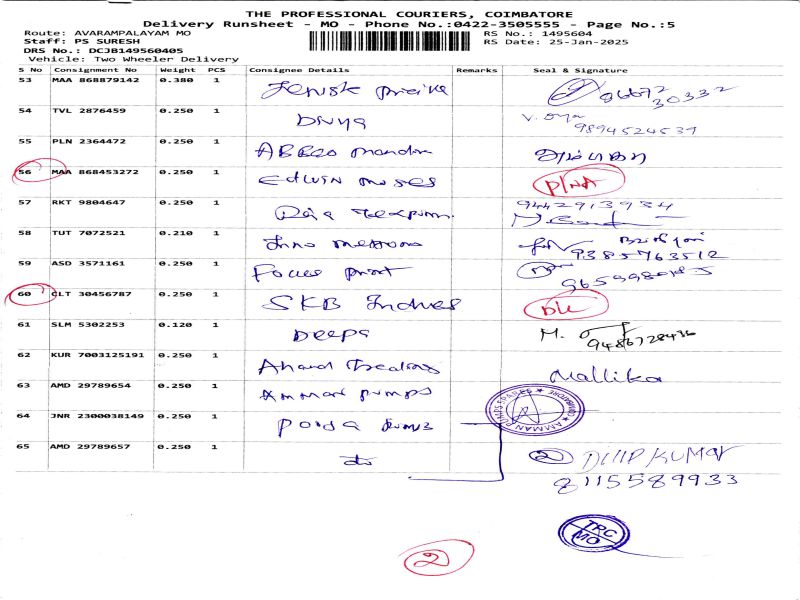 THE PROFESSIONAL COURIERS, COIMBATORE
Delivery Runsheet - MO - Phone No.:0422-3505555 - Page No.:5
Route: AVARAMPALAYAM MO
Staff: PS SURESH
DRS No.: DCJB149560405
Vehicle: Two Wheeler Delivery
RS No.: 1495604
RS Date: 25-Jan-2025
S No Consignment No Weight PCS Consignee Details Remarks Seal & Signature
53 MAA 868879142 0.380 1 86672
30332
54 TVL 2876459 0.250 1 Divya
9894524537
55 PLN 2364472 0.250 1
56 MAA 868453272 0.250 1 Edwin Moses D/NA
57 RKT 9804647 0.250 1 9442913934
58 TUT 7072521 0.210 1 9385763512
59 ASD 3571161 0.250 1 Focus print
60 CLT 30456787 0.250 1 SKB D/L
61 SLM 5302253 0.120 1 Deepa M.
9486728436
62 KUR 7003125191 0.250 1 Anand Trading Mallika
63 AMD 29789654 0.250 1 Amman pumps
64 JNR 2300038149 0.250 1 pumps
65 AMD 29789657 0.250 1 do DILIP KUMAR
8115589933
TRC
MO
2